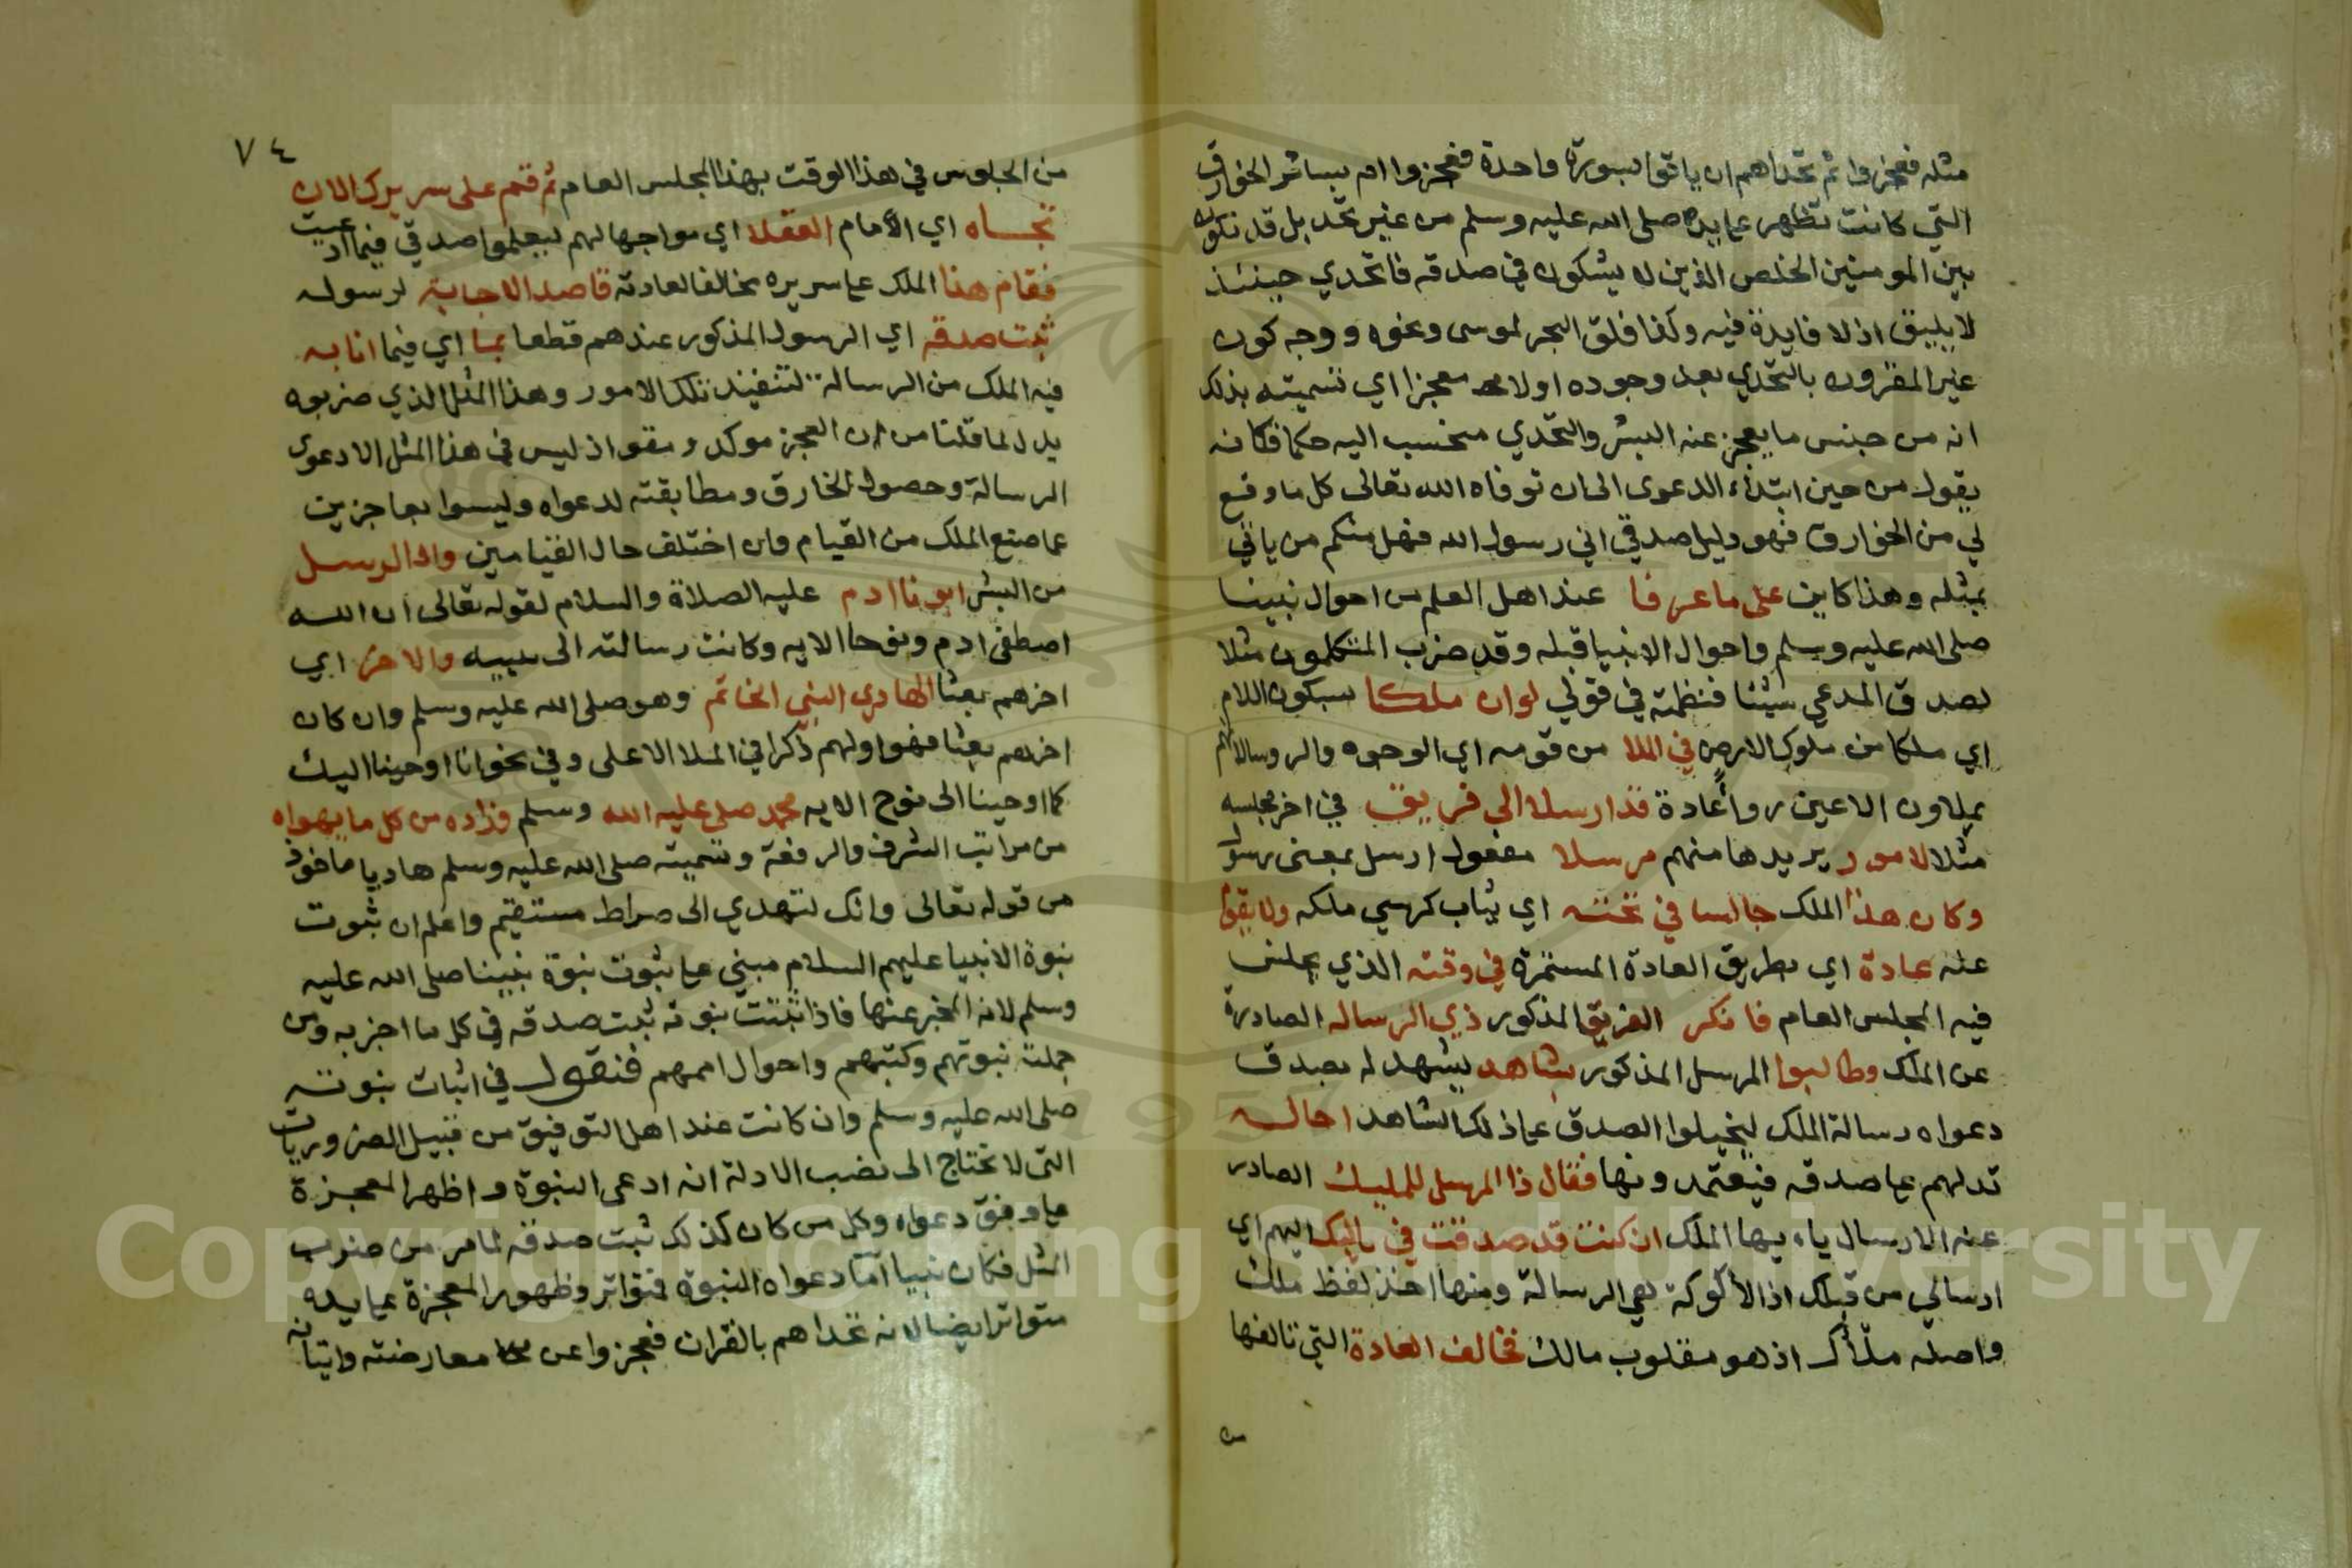 مثله فعجزوا ثم تحداهم ان ياتوا بسورة واحدة فعجزوا ام بسائر الخوارق
التي كانت تظهر علي يده صلى الله عليه وسلم من غير تحد بل قد تكون
بين المومنين الخلص الذين لا يشكون في صدقه فالتحدي حينئذ
لا يليق اذ لا فايدة فيه وكذا فلق البحر لموسى ونحوه ووجه كون
غير المقرون بالتحدي بعد وجوده اولا معجزا اي تسميته بذلك
انه من جنس ما يعجز عنه البشر والتحدي منحسب اليه حكما فكانه
يقول من حين ابتداء الدعوى الى ان توفاه الله تعالى كل ما وقع
لي من الخوارق فهو دليل صدقي اني رسول الله فهل منكم من ياتي
بمثله وهذا كاين على ما عرفا عند اهل العلم من احوال نبينا
صلى الله عليه وسلم واحوال الانبيا قبله وقد ضرب المتكلمون مثلا
لصدق المدعي شيئا فنظمته في قولي لو ان ملكا بسكون اللام
اي ملكا من ملوك الارض في الملا من قومه اي الوجوه والروسا لانهم
يملاون الاعين رواً عادة قد ارسلا الى فريق في اخر مجلسه
مثلا لامور يريدها منهم مرسلا مفعول ارسل بمعنى رسول
وكان هذا الملك جالسا في تخته اي ثياب كرسي ملكه ولا يقوم
عنه عادة اي بطريق العادة المستمرة في وقته الذي يجلس
فيه المجلس العام فانكر الفريق المذكور ذي الرساله الصادرة
عن الملك وطالبوا المرسل المذكور بشاهد يشهد له بصدق
دعواه رسالة الملك ليخيلوا الصدق علي ذلك الشاهد احاله
تدلهم علي صدقه فيعتمدونها فقال ذا المرسل للمليك الصادر
عنه الارسال يا ايها الملك ان كنت قد صدقت في ياليك اليهم اي
ارسالي من قبلك اذ الألوكة هي الرسالة ومنها اخذ لفظ ملك
واصله ملأك اذ هو مقلوب مالك فخالف العادة التي تالفها
من
٧٤
من الجلوس في هذا الوقت بهذا المجلس العام ثم قم على سريرك الان
تجاه اي الأمام العقلا اي مواجها لهم ليعلموا صدقي فيما ادعيت
فقام هذا الملك علي سريره مخالفا لعادته قاصد الاجابة لرسوله
ثبت صدقه اي الرسول المذكور عندهم قطعا بما اي فيما انابه
فيه الملك من الرسالة لتنفيذ تلك الامور وهذا المثل الذي ضربوه
يدل لما قلنا من ان العجز موكد ومقو اذ ليس في هذا المثل الا دعوى
الرسالة وحصول الخارق ومطابقته لدعواه وليسوا بعاجزين
عما صنع الملك من القيام وان اختلف حال القيامين واول الرسل
من البشر ابونا ادم عليه الصلاة والسلام لقوله تعالى ان الله
اصطفى ادم ونوحا الايه وكانت رسالته الى بنيه والاخر اي
اخرهم بعثا الهادي النبي الخاتم وهو صلى الله عليه وسلم وان كان
اخرهم بعثا فهو اولهم ذكرا في الملا الاعلى وفي نحو انا اوحينا اليك
كما اوحينا الى نوح الايه محمد صلى عليه الله وسلم وزاده من كل ما يهواه
من مراتب الشرف والرفعة وتسميته صلى الله عليه وسلم هاديا ماخوذ
من قوله تعالى وانك لتهدي الى صراط مستقيم واعلم ان ثبوت
نبوة الانبيا عليهم السلام مبني علي ثبوت نبوة نبينا صلى الله عليه
وسلم لانه المخبر عنها فاذا ثبتت نبوته ثبت صدقه في كل ما اخبر به ومن
جملته نبوتهم وكتبهم واحوال اممهم فنقول في اثبات نبوته
صلى الله عليه وسلم وان كانت عند اهل التوفيق من قبيل الضروريات
التي لا تحتاج الى نصب الادلة انه ادعى النبوة واظهر المعجزة
علي وفق دعواه وكل من كان كذلك ثبت صدقه لما مر من ضرب
المثل فكان نبيا اما دعواه النبوة فتواتر وظهور المعجزة علي يده
متواتر ايضا لانه تحداهم بالقران فعجزوا عن معارضته واتيانه
Copyright © King Saud University
1957